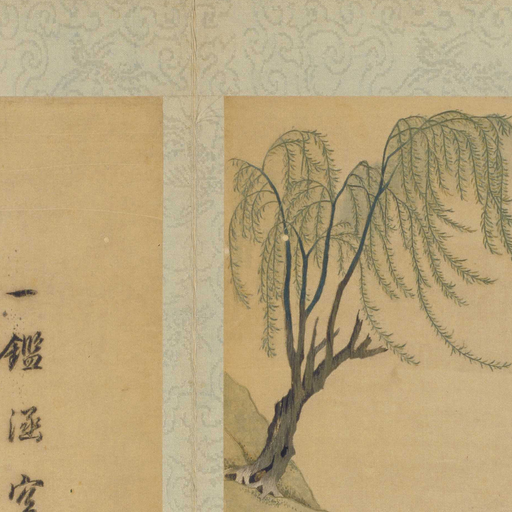 一鑑涵空